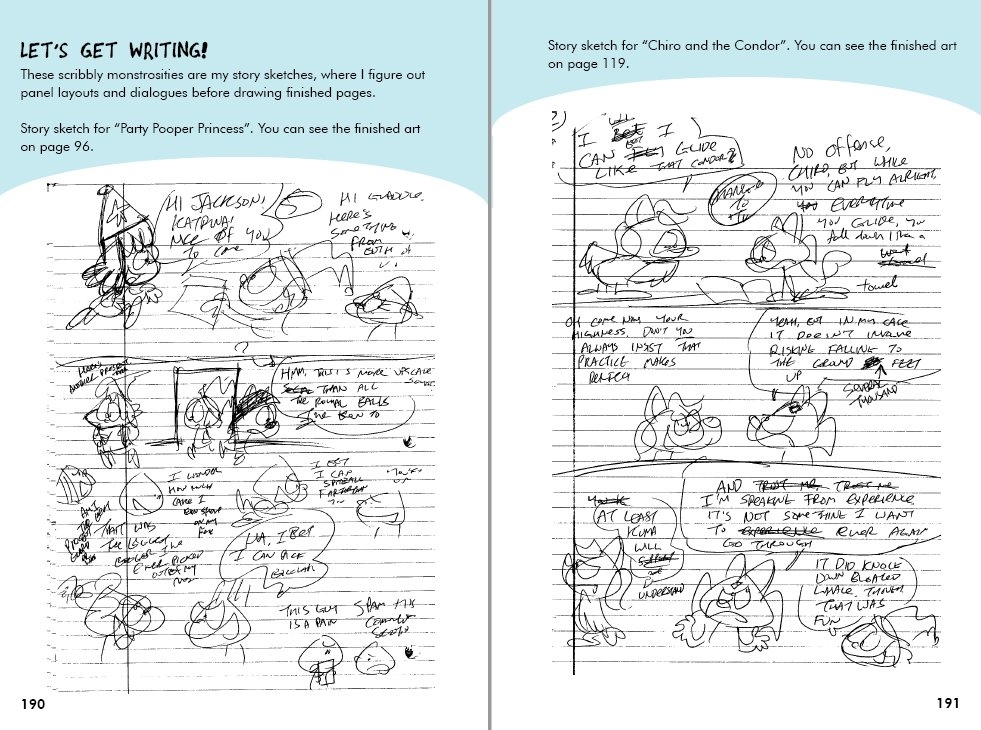 LET'S GET WRITING!
These scribbly monstrosities are my story sketches, where I figure out
panel layouts and dialogues before drawing finished pages.
Story sketch for "Party Pooper Princess". You can see the finished art
on page 96.
HI JACKSON!
KATRINA!
NICE OF YOU
TO COME
HI
HERE'S
SOMETHING
FROM
BOTH OF
HERE'S
ANOTHER PRESENT
?
HMM, THIS IS MORE UPSCALE
THAN ALL
THE ROYAL BALLS
I'VE BEEN TO
I WONDER
HOW MUCH
CAKE I
CAN
ON MY
FACE
I BET
I CAN
SPITBALL
FARTHER
THAT WAS
THE BIGGEST
BOOGER I'VE
EVER PICKED
OUTTA MY
NOSE
HA, I BET
I CAN KICK
THIS GUY
IS A PAIN
190
Story sketch for "Chiro and the Condor". You can see the finished art
on page 119.
I BET I
CAN GLIDE
LIKE THAT CONDOR!
NO OFFENSE,
CHIRO, BUT WHILE
YOU CAN FLY ALRIGHT,
EVERYTIME
YOU GLIDE, YOU
fall down like a
towel
OH COME NOW YOUR
HIGHNESS, DON'T YOU
ALWAYS INSIST THAT
PRACTICE MAKES
PERFECT
YEAH, BUT IN MY CASE
IT DOESN'T INVOLVE
RISKING FALLING TO
THE GROUND FEET
UP
SEVERAL
THOUSAND
AT LEAST
KUMA
WILL
UNDERSTAND
AND TRUST ME TRUST ME
I'M SPEAKING FROM EXPERIENCE
IT'S NOT SOMETHING I WANT
TO EXPERIENCE EVER AGAIN
GO THROUGH
IT DID KNOCK
DOWN BLOATED
WHALE, THOUGH
THAT WAS
FUN
191